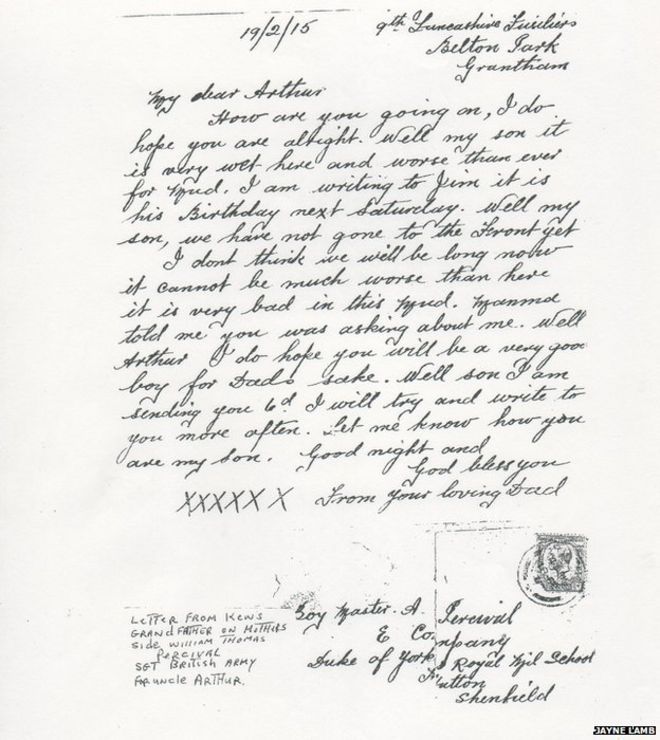 19/2/15
9th Lancashire Fusiliers
Belton Park
Grantham
My dear Arthur
How are you going on, I do
hope you are alright. Well my son it
is very wet here and worse than ever
for Mud. I am writing to Jim it is
his Birthday next Saturday. Well my
son, we have not gone to the Front yet
I dont think we will be long now
it cannot be much worse than here
it is very bad in this Mud. Mamma
told me you was asking about me. Well
Arthur I do hope you will be a very goo
boy for Dads sake. Well son I am
sending you 6d I will try and write to
you more often. Let me know how you
are my son. Good night and
God bless you
XXXXX X From your loving Dad
Boy Master. A. Percival
E Company
Duke of York's Royal Mil School
Hutton
Shenfield
LETTER FROM KEWS
GRANDFATHER ON MOTHERS
SIDE WILLIAM THOMAS
PERCIVAL
SGT BRITISH ARMY
FOR UNCLE ARTHUR.
JAYNE LAMB